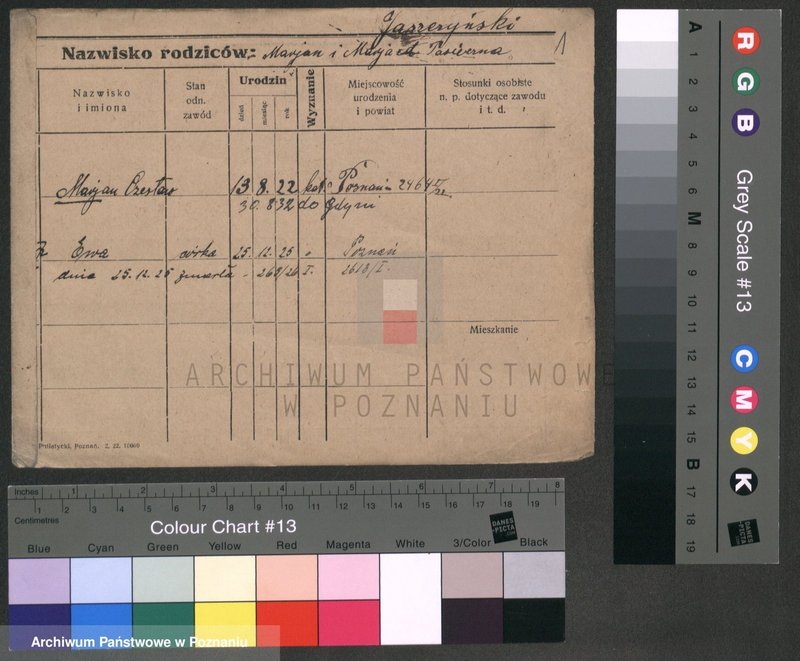 Jaszeryński
1
Nazwisko rodziców: Marjan i Marja
Nazwisko i imiona
Stan odn. zawód
Urodzin
dzień
miesiąc
rok
Wyznanie
Miejscowość urodzenia i powiat
Stosunki osobiste n. p. dotyczące zawodu i t. d.
Marjan Czesław 13. 8. 22 kat. Poznań
30. 8 32 do Gdyni
Ewa córka 25. 12. 25 " Poznań
dnia 25. 12. 25 zmarła - 263/26 I.
Mieszkanie
ARCHIWUM PAŃSTWOWE
W POZNANIU
Inches 1 2 3 4 5 6 7 8
1 2 3 4 5 6 7 8 9 10 11 12 13 14 15 16 17 18 19
Centimetres
Colour Chart #13
DANES-PICTA.COM
Blue Cyan Green Yellow Red Magenta White 3/Color Black
Archiwum Państwowe w Poznaniu
A 1 2 3 4 5 6 M 8 9 10 11 12 13 14 15 B 17 18 19
R G B
Grey Scale #13
C M Y K